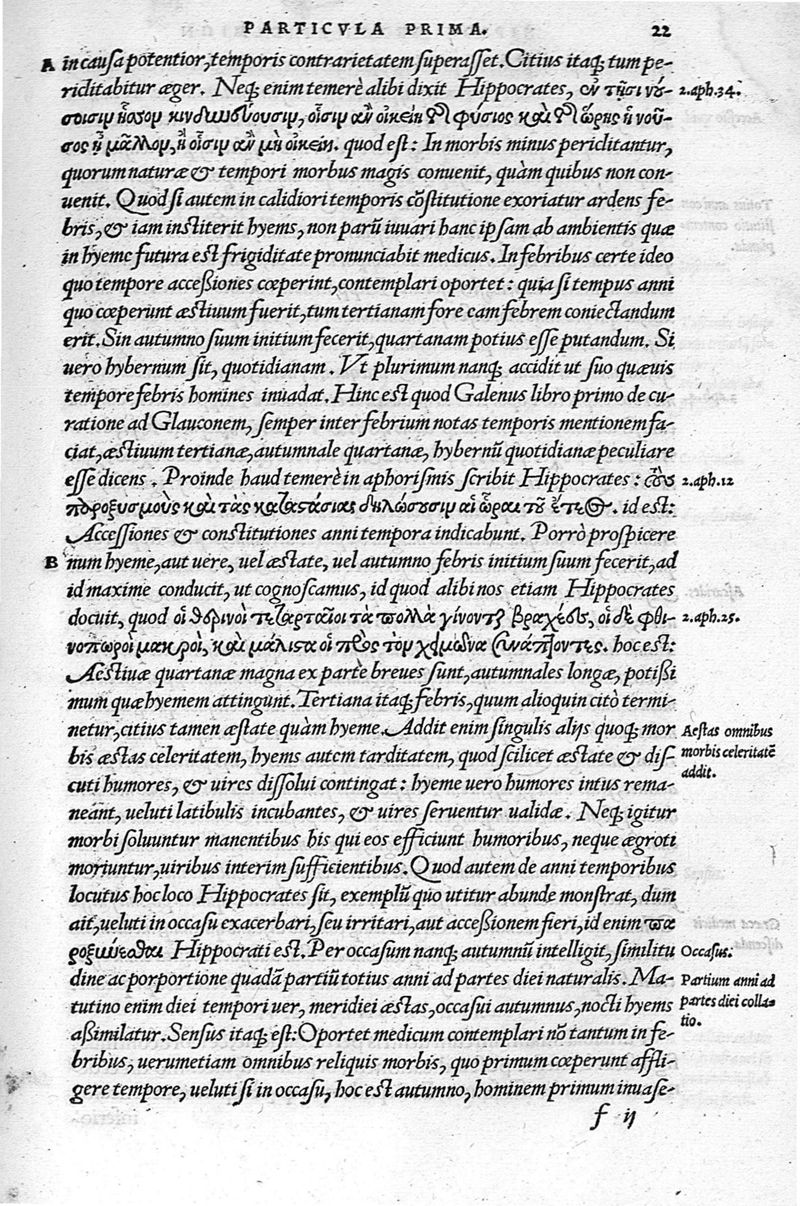 PARTICVLA PRIMA. 22
A in causa potentior, temporis contrarietatem superasset. Citius itaq; tum pe-
riclitabitur æger. Neq; enim temerè alibi dixit Hippocrates, ἐν τῇσι νού- 2.aph.34.
σοισιν ἧσσον κινδυνεύουσιν, οἷσιν ἂν οἰκείη τῆς φύσιος καὶ τῆς ὥρης ἡ νοῦ-
σος ᾖ μᾶλλον, ἢ οἷσιν ἂν μὴ οἰκείη. quod est: In morbis minus periclitantur,
quorum naturæ & tempori morbus magis conuenit, quàm quibus non con-
uenit. Quod si autem in calidiori temporis cōstitutione exoriatur ardens fe-
bris, & iam institerit hyems, non parū iuuari hanc ipsam ab ambientis quæ
in hyeme futura est frigiditate pronunciabit medicus. In febribus certe ideo
quo tempore accessiones cœperint, contemplari oportet: quia si tempus anni
quo cœperunt æstiuum fuerit, tum tertianam fore eam febrem coniectandum
erit. Sin autumno suum initium fecerit, quartanam potius esse putandum. Si
uero hybernum sit, quotidianam. Vt plurimum nanq; accidit ut suo quæuis
tempore febris homines inuadat. Hinc est quod Galenus libro primo de cu-
ratione ad Glauconem, semper inter febrium notas temporis mentionem fa-
ciat, æstiuum tertianæ, autumnale quartanæ, hybernū quotidianæ peculiare
esse dicens. Proinde haud temerè in aphorismis scribit Hippocrates: τοὺς 2.aph.12
παροξυσμοὺς καὶ τὰς καταστάσιας δηλώσουσιν αἱ ὧραι τοῦ ἔτεος. id est:
Accessiones & constitutiones anni tempora indicabunt. Porrò prospicere
B num hyeme, aut uere, uel æstate, uel autumno febris initium suum fecerit, ad
id maxime conducit, ut cognoscamus, id quod alibi nos etiam Hippocrates
docuit, quod οἱ θερινοὶ τεταρταῖοι τὰ πολλὰ γίνονται βραχέες, οἱ δὲ φθι- 2.aph.25.
νοπωροὶ μακροὶ, καὶ μάλιστα οἱ πρὸς τὸν χειμῶνα συνάπτοντες. hoc est:
Aestiuæ quartanæ magna ex parte breues sunt, autumnales longæ, potißi
mum quæ hyemem attingunt. Tertiana itaq; febris, quum alioquin citò termi-
netur, citius tamen æstate quàm hyeme. Addit enim singulis alijs quoq; mor Aestas omnibus
bis æstas celeritatem, hyems autem tarditatem, quod scilicet æstate & dis- morbis celeritatē
cuti humores, & uires dissolui contingat: hyeme uero humores intus rema- addit.
neant, ueluti latibulis incubantes, & uires seruentur ualidæ. Neq; igitur
morbi soluuntur manentibus his qui eos efficiunt humoribus, neque ægroti
moriuntur, uiribus interim sufficientibus. Quod autem de anni temporibus
locutus hoc loco Hippocrates sit, exemplū quo utitur abunde monstrat, dum
ait, ueluti in occasu exacerbari, seu irritari, aut acceßionem fieri, id enim πα
ροξύνεσθαι Hippocrati est. Per occasum nanq; autumnū intelligit, similitu Occasus.
dine ac porportione quadā partiū totius anni ad partes diei naturalis. Ma- Partium anni ad
tutino enim diei tempori uer, meridiei æstas, occasui autumnus, nocti hyems partes diei colla-
aßimilatur. Sensus itaq; est: Oportet medicum contemplari nō tantum in fe- tio.
bribus, uerumetiam omnibus reliquis morbis, quo primum cœperunt affli-
gere tempore, ueluti si in occasu, hoc est autumno, hominem primum inuase-
f ij